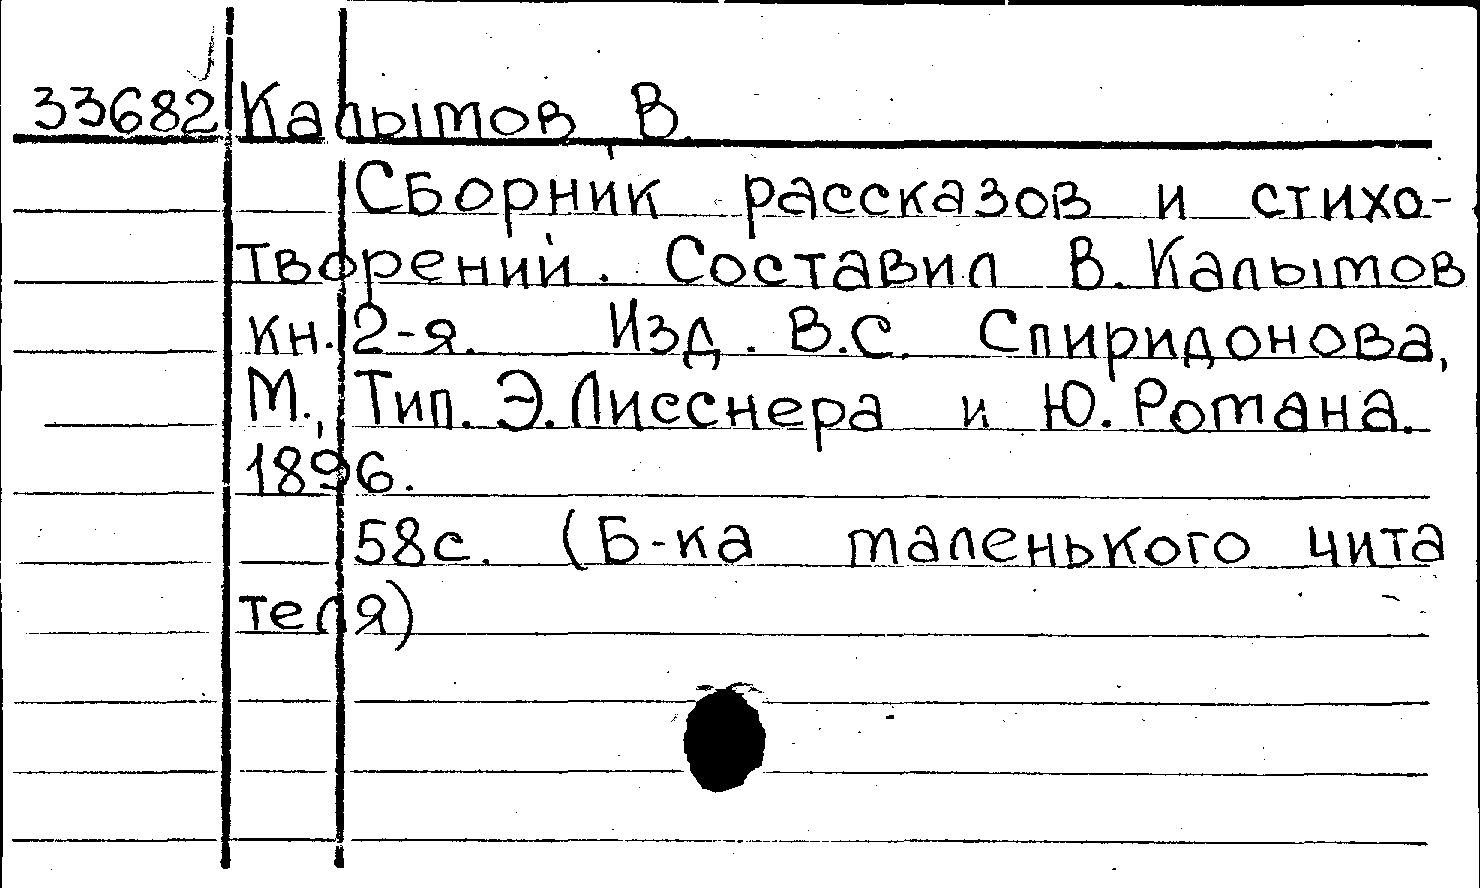 33682 Калымов В.
Сборник рассказов и стихо-
творений. Составил В. Калымов
кн. 2-я. Изд. В.С. Спиридонова,
М., Тип. Э. Лисснера и Ю. Романа.
1896.
58с. (Б-ка маленького чита
теля)